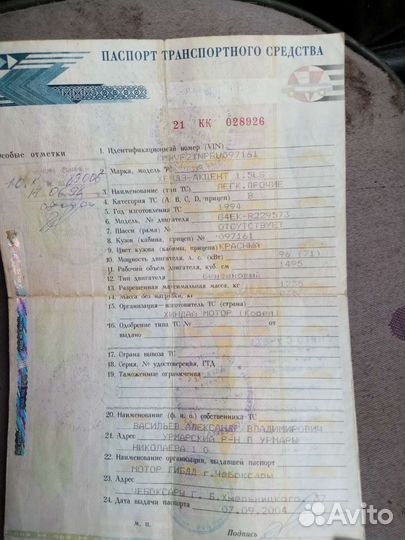 ПАСПОРТ ТРАНСПОРТНОГО СРЕДСТВА
21 КК 028926
Особые отметки
1. Идентификационный номер (VIN)
2. Марка, модель ТС
ХЕНДЭ-АКЦЕНТ 1.5LS
3. Наименование (тип ТС) ЛЕГК.ПРОЧИЕ
4. Категория ТС (A, B, C, D, прицеп) B
5. Год изготовления ТС 1994
6. Модель, № двигателя G4EK-R229573
7. Шасси (рама) № ОТСУТСТВУЕТ
8. Кузов (кабина, прицеп) № 097161
9. Цвет кузова (кабины, прицепа) КРАСНЫЙ
10. Мощность двигателя, л. с. (кВт) 96 (71)
11. Рабочий объем двигателя, куб. см 1495
12. Тип двигателя БЕНЗИНОВЫЙ
13. Разрешенная максимальная масса, кг
14. Масса без нагрузки, кг
15. Организация-изготовитель ТС (страна)
ХИНДАЙ МОТОР (Корея)
16. Одобрение типа ТС №
17. Страна вывоза ТС
18. Серия, № удостоверения, ГТД
19. Таможенные ограничения
20. Наименование (ф. и. о.) собственника ТС
ВАСИЛЬЕВ АЛЕКСАНДР ВЛАДИМИРОВИЧ
21. Адрес УРМАРСКИЙ Р-Н П УРМАРЫ
НИКОЛАЕВА 10
22. Наименование организации, выдавшей паспорт
МОТОР ГИБДД г.Чебоксары
23. Адрес
ЧЕБОКСАРЫ Г. Б.Хмельницкого,
24. Дата выдачи паспорта 07.09.2004
М. П. Подпись
Avito